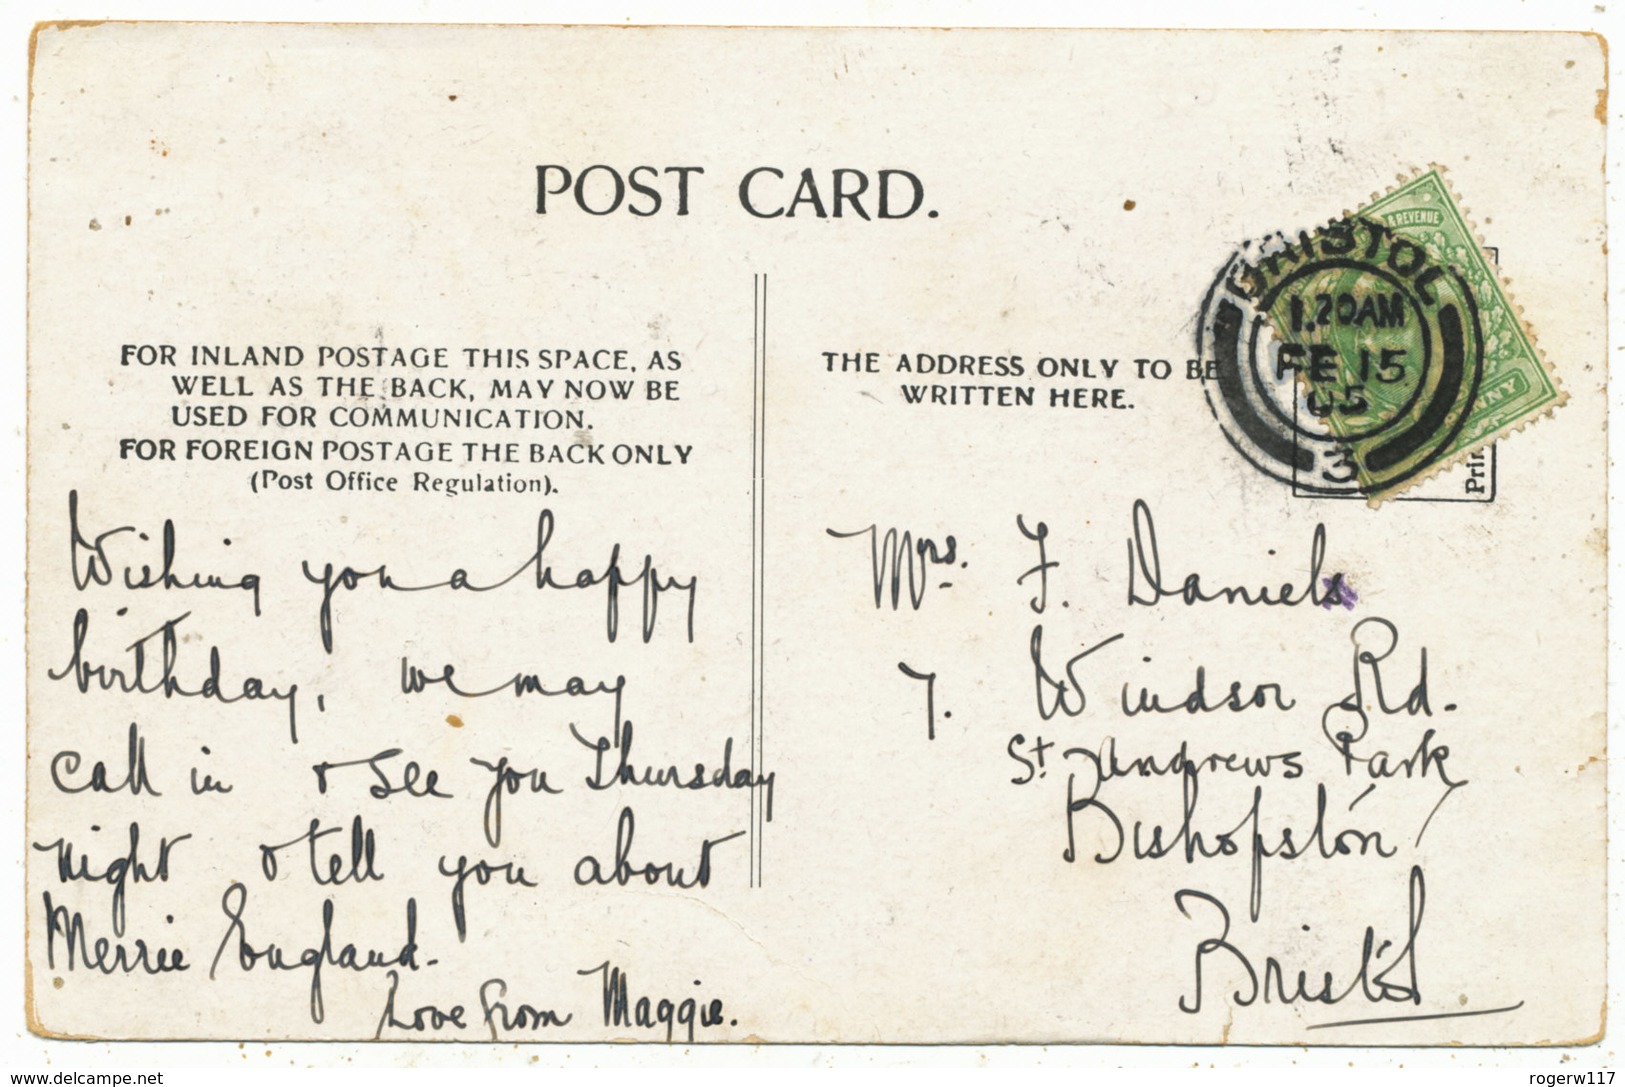 POST CARD.
FOR INLAND POSTAGE THIS SPACE, AS
WELL AS THE BACK, MAY NOW BE
USED FOR COMMUNICATION.
FOR FOREIGN POSTAGE THE BACK ONLY
(Post Office Regulation).
Wishing you a happy
birthday, we may
call in & see you Thursday
night & tell you about
Merrie England.
Love from Maggie.
THE ADDRESS ONLY TO BE
WRITTEN HERE.
& REVENUE
BRISTOL
1.20AM
FE 15
05
3
Mrs. F. Daniels
7. Windsor Rd.
St Andrews Park
Bishopston
Bristol
www.delcampe.net
rogerw117